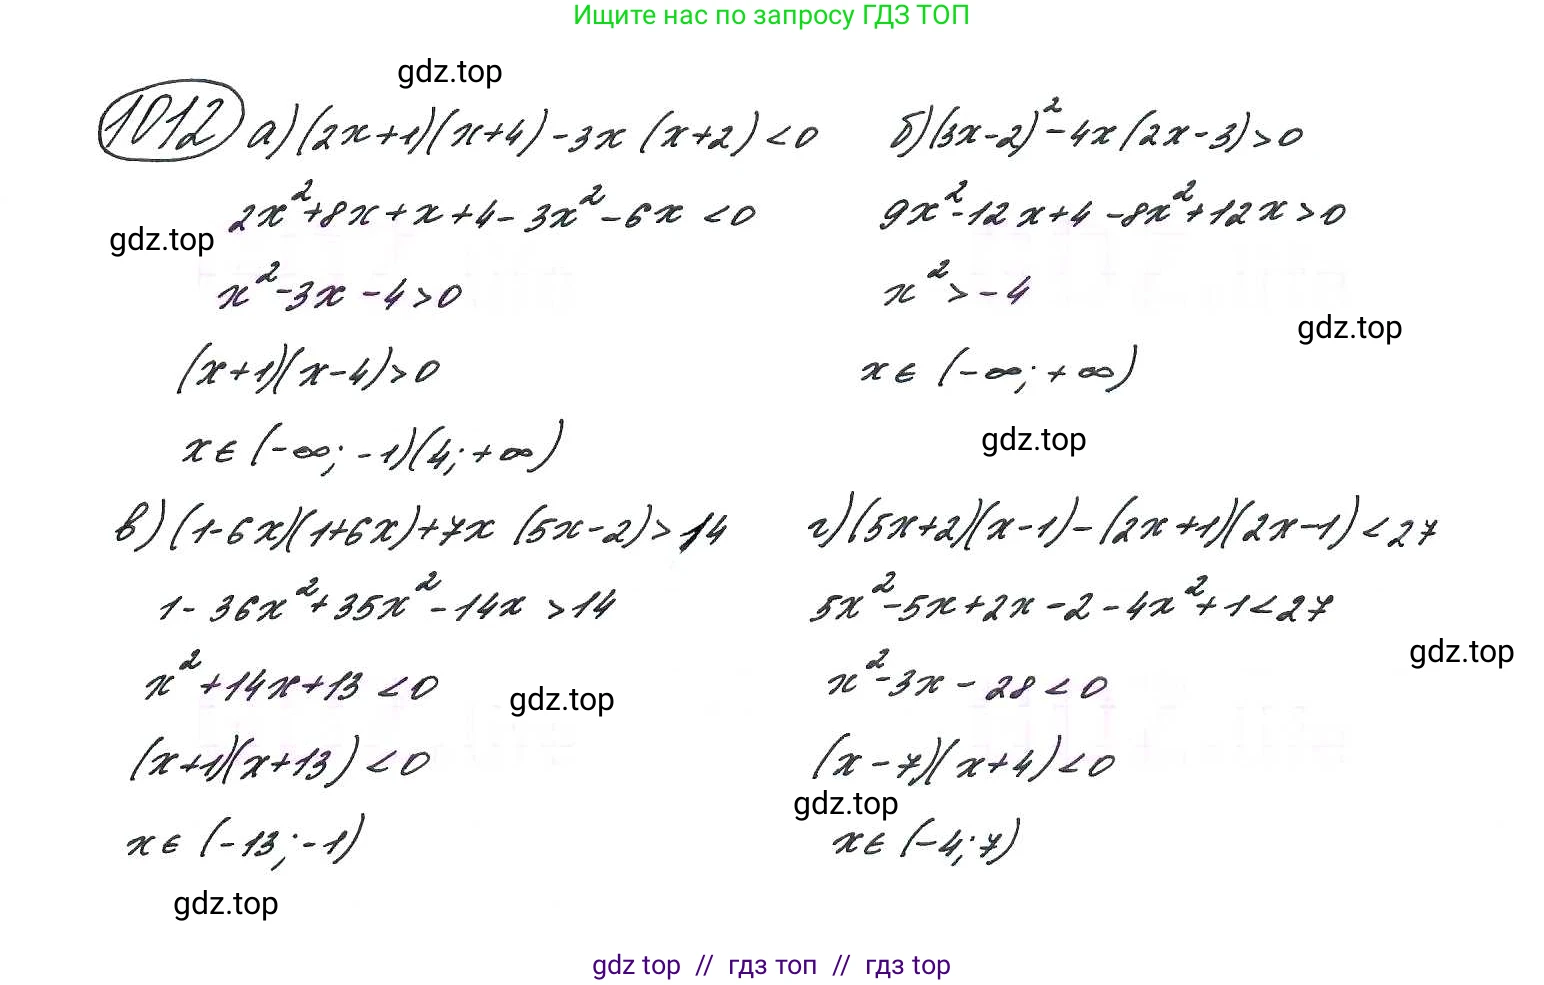 Ищите нас по запросу ГДЗ ТОП
gdz.top
1012 а) (2x+1)(x+4) - 3x (x+2) < 0
2x²+8x+x+4- 3x²-6x < 0
gdz.top
x²-3x-4>0
(x+1)(x-4)>0
x ∈ (-∞; -1)(4; +∞)
б) (3x-2)²-4x(2x-3)>0
9x²-12x+4-8x²+12x>0
x²>-4
gdz.top
x ∈ (-∞; +∞)
gdz.top
в) (1-6x)(1+6x)+7x (5x-2)>14
1- 36x²+35x²-14x >14
x²+14x+13 <0
gdz.top
(x+1)(x+13) <0
x ∈ (-13; -1)
gdz.top
г) (5x+2)(x-1)-(2x+1)(2x-1)<27
5x²-5x+2x-2-4x²+1<27
gdz.top
x²-3x-28<0
(x-7)(x+4)<0
gdz.top
x ∈ (-4; 7)
gdz top // гдз топ // гдз top